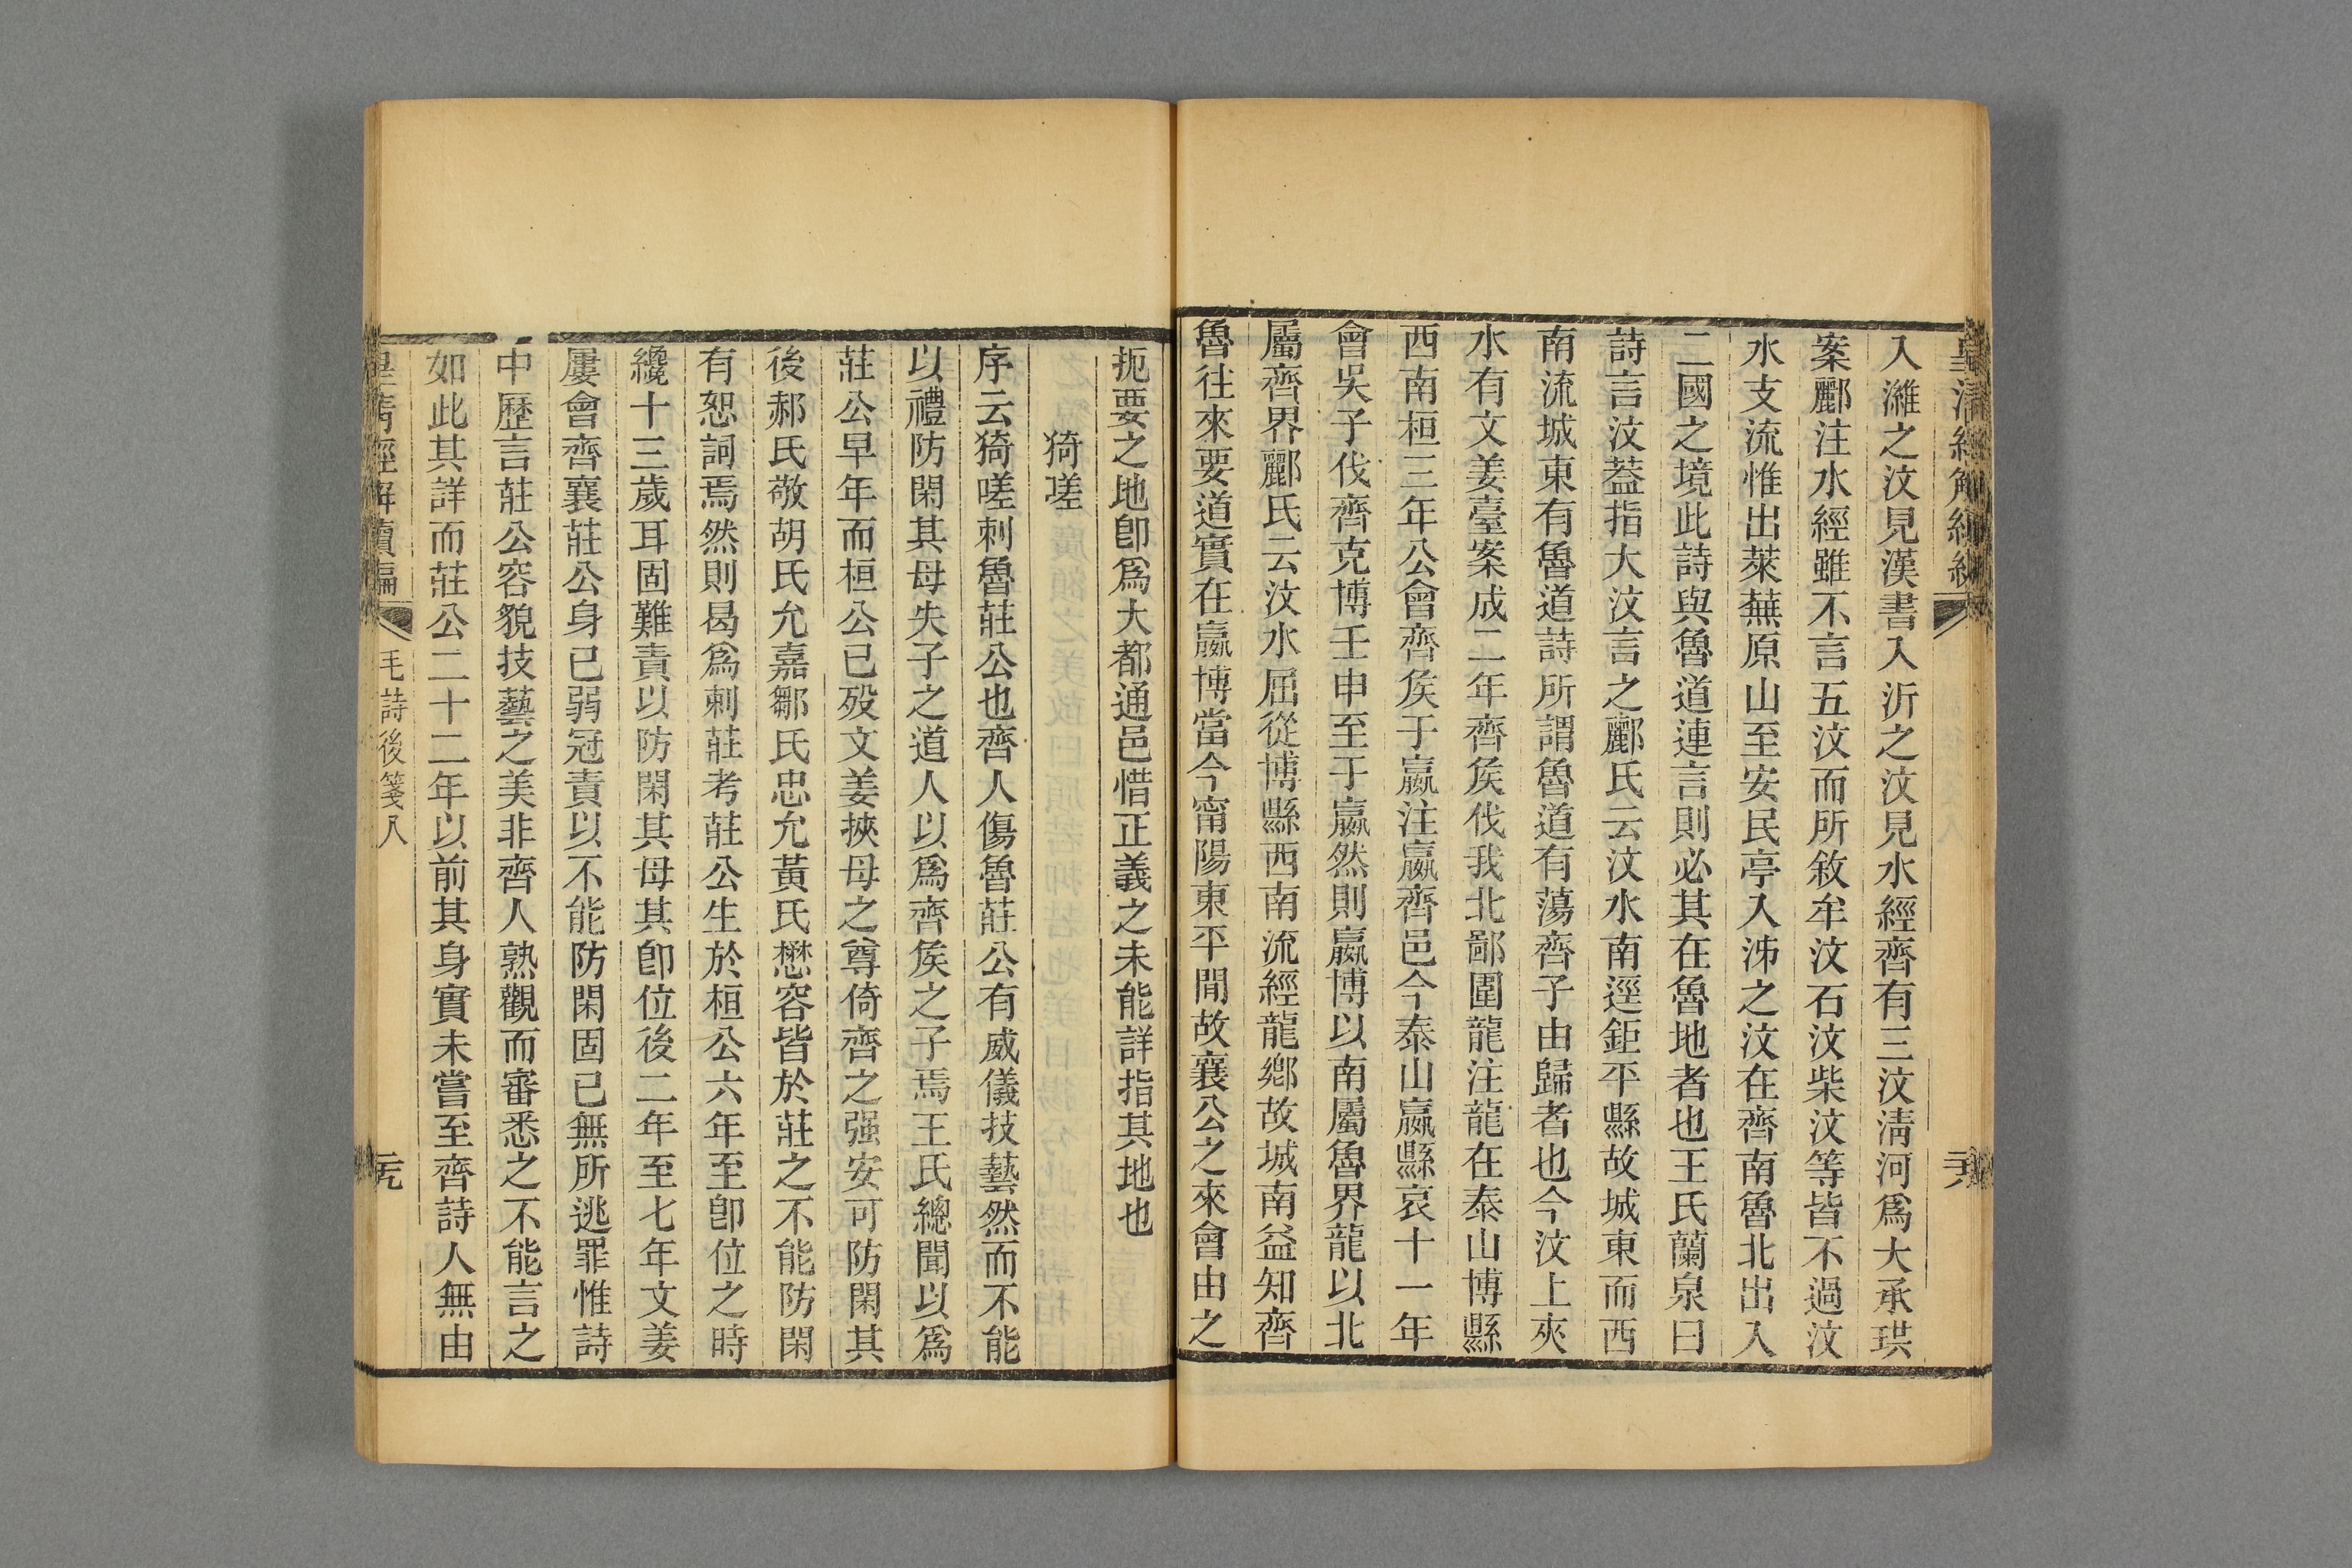 皇清經解續編
入濰之汶見漢書入沂之汶見水經齊有三汶淸河爲大承珙
案酈注水經雖不言五汶而所敘牟汶石汶柴汶等皆不過汶
水支流惟出萊蕪原山至安民亭入泲之汶在齊南魯北出入
二國之境此詩與魯道連言則必其在魯地者也王氏蘭泉曰
詩言汶葢指大汶言之酈氏云汶水南逕鉅平縣故城東而西
南流城東有魯道詩所謂魯道有蕩齊子由歸者也今汶上夾
水有文姜臺案成二年齊侯伐我北鄙圍龍注龍在泰山博縣
西南桓三年公會齊侯于嬴注嬴齊邑今泰山嬴縣哀十一年
會吳子伐齊克博壬申至于嬴然則嬴博以南屬魯界龍以北
屬齊界酈氏云汶水屈從博縣西南流經龍鄕故城南益知齊
魯往來要道實在嬴博當今甯陽東平閒故襄公之來會由之
扼要之地卽爲大都通邑惜正義之未能詳指其地也
猗嗟
序云猗嗟刺魯莊公也齊人傷魯莊公有威儀技藝然而不能
以禮防閑其母失子之道人以爲齊侯之子焉王氏總聞以爲
莊公早年而桓公已歿文姜挾母之尊倚齊之强安可防閑其
後郝氏敬胡氏允嘉鄒氏忠允黃氏懋容皆於莊之不能防閑
有恕詞焉然則曷爲刺莊考莊公生於桓公六年至卽位之時
纔十三歲耳固難責以防閑其母其卽位後二年至七年文姜
屢會齊襄莊公身已弱冠責以不能防閑固已無所逃罪惟詩
中歷言莊公容貌技藝之美非齊人熟觀而審悉之不能言之
如此其詳而莊公二十二年以前其身實未嘗至齊詩人無由
皇清經解續編
毛詩後箋八